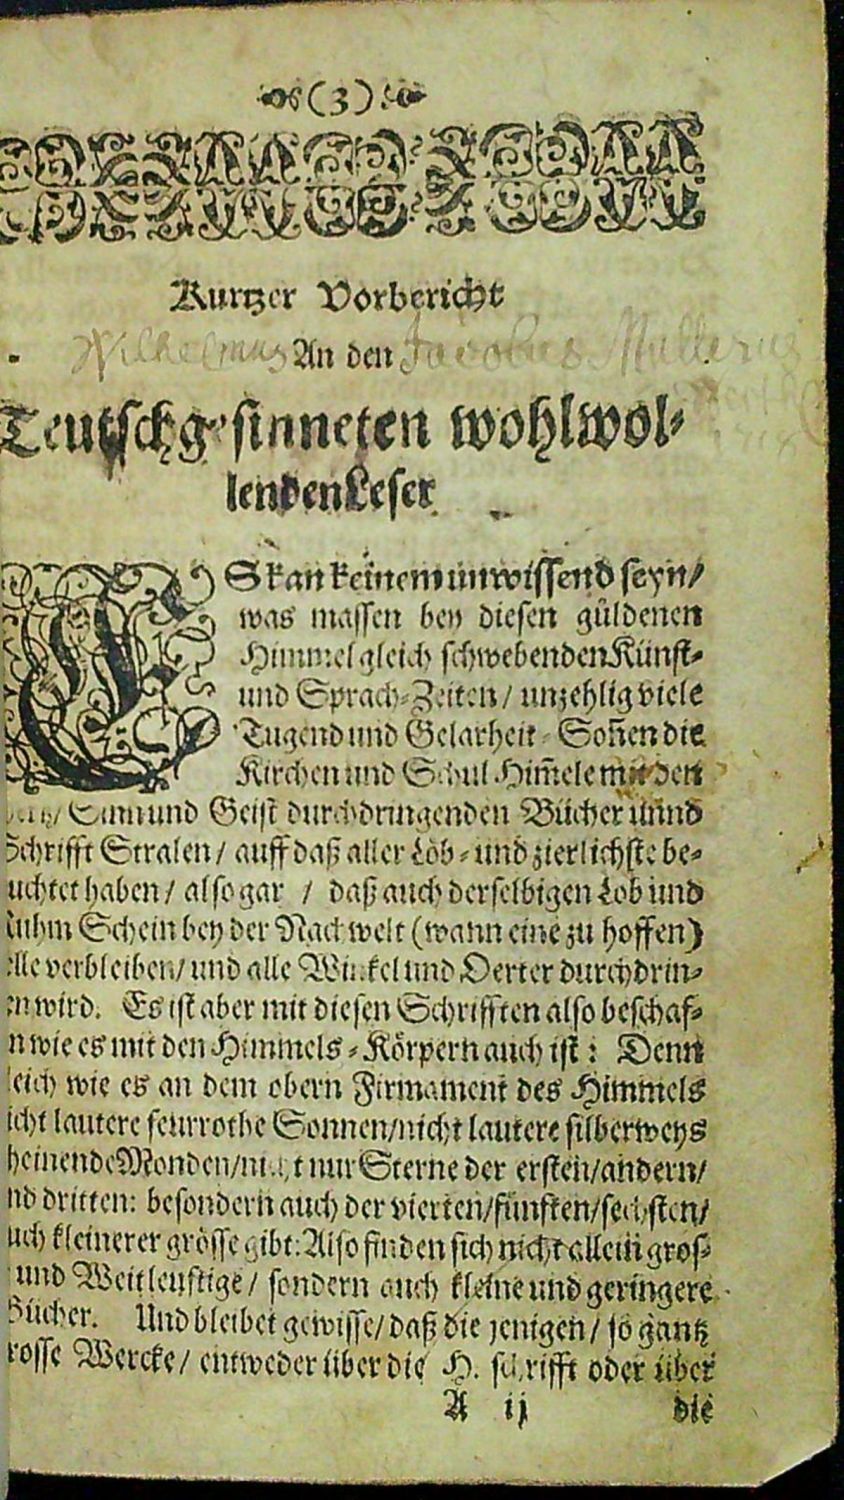 (3)
Kurtzer Vorbericht
Wilhelmus An den Jacobus Mullerus
Teutschgesinneten wohlwol-
lenden Leser
ES kan keinem unwissend seyn/
was massen bey diesen güldenen
Himmel gleich schwebenden Künst-
und Sprach-Zeiten / unzehlig viele
Tugend und Gelarheit - Soñen die
Kirchen und Schul-Him̃ele mit den
Sinn und Geist durchdringenden Bücher unnd
Schrifft Stralen / auff daß aller Lob- und zierlichste be-
uchtet haben / also gar / daß auch derselbigen Lob und
Ruhm Schein bey der Nachwelt (wann eine zu hoffen)
elle verbleiben/ und alle Winkel und Oerter durchdrin-
en wird. Es ist aber mit diesen Schrifften also beschaf-
n wie es mit den Himmels-Körpern auch ist: Denn
leich wie es an dem obern Firmament des Himmels
icht lautere feurrothe Sonnen/nicht lautere silberweys
heinende Monden/nicht nur Sterne der ersten/andern/
nd dritten: besondern auch der vierten/fünften/sechsten/
uch kleinerer grösse gibt: Also finden sich nicht allein gros-
und Weitleuftige / sondern auch kleine und geringere
Bücher. Und bleibet gewisse/ daß die jenigen / so gantz
rosse Wercke / entweder über die H. schrifft oder über
A ij die